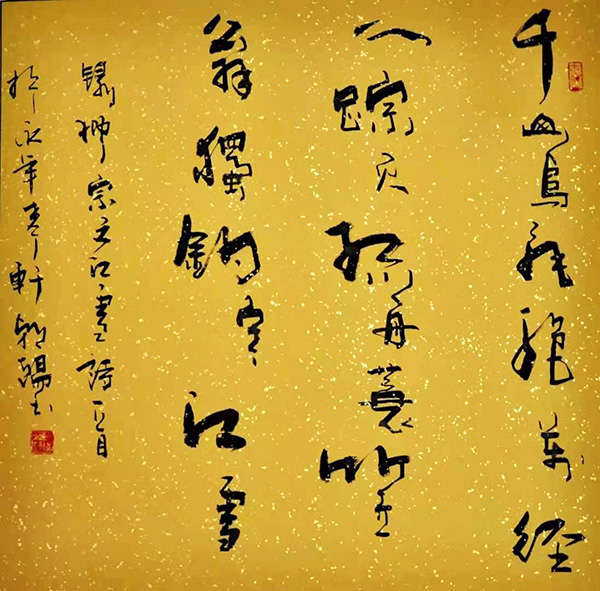 千山鳥飛絕萬徑
人蹤灭孤舟蓑笠
翁獨釣寒江雪
錄柳宗元江雪詩一首
於永年軒書